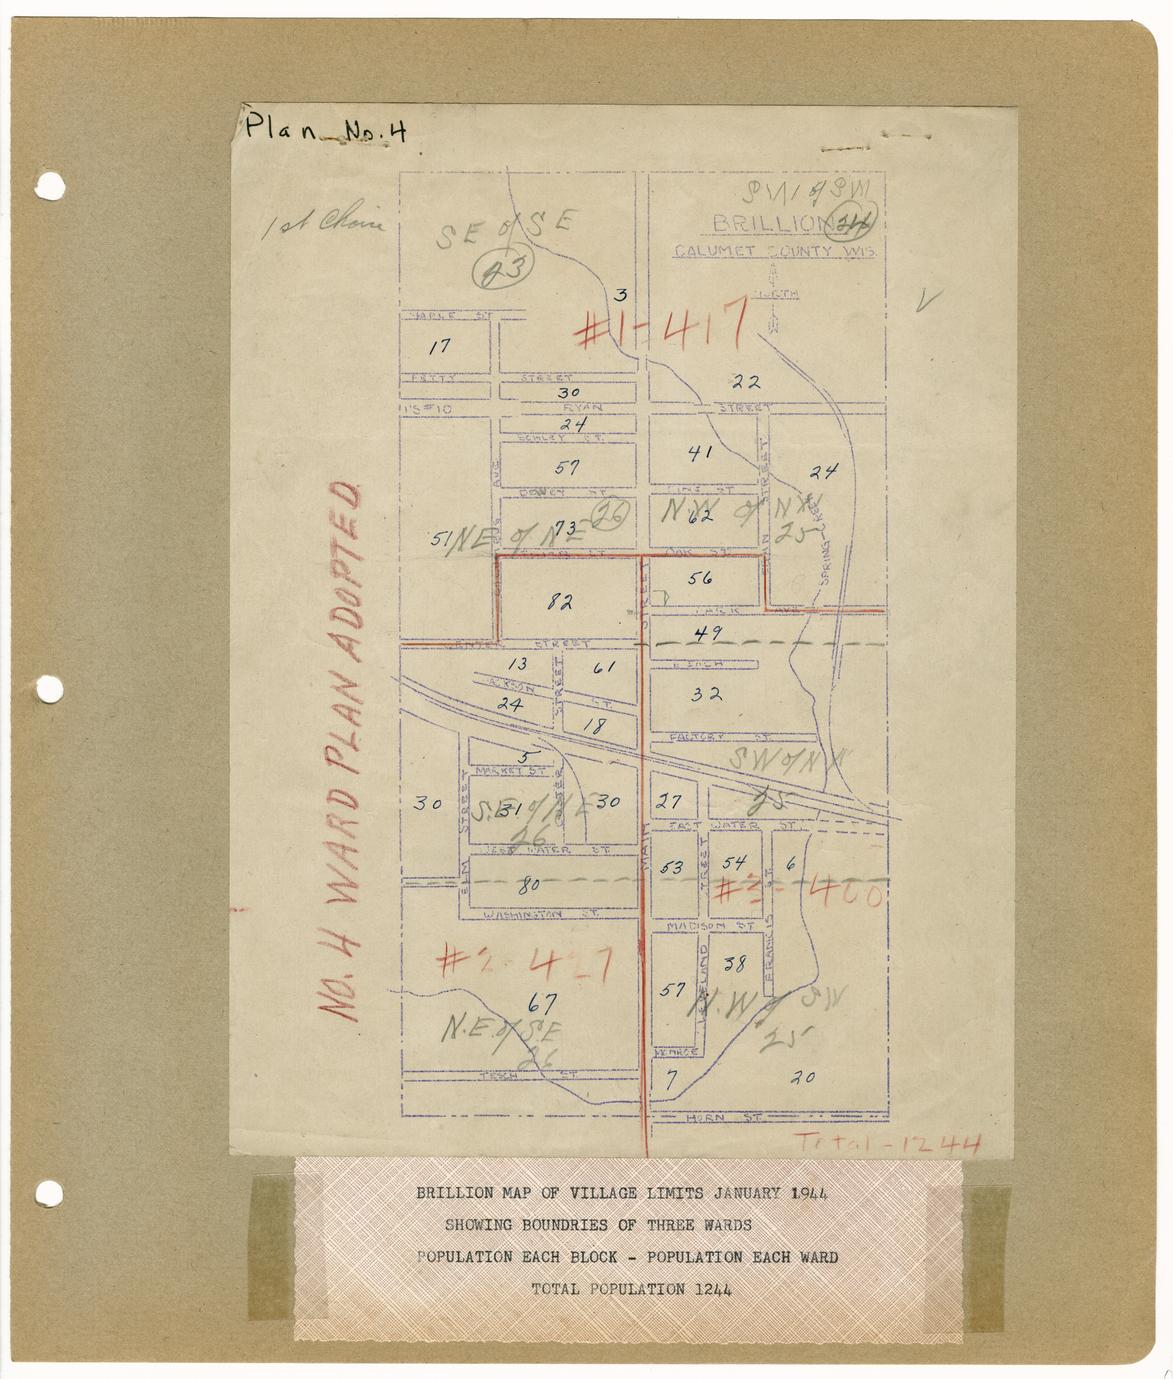 Plan No. 4
1st Choice
SE of SE
23
SW of SW
24
BRILLION
CALUMET COUNTY WIS.
NORTH
V
3
#1-417
MAPLE ST.
17
STREET
30
22
RYAN
STREET
24
SCHLEY ST.
41
57
24
DEWEY ST.
26
73
62
51
NE of NE
N.W of NW
25
AVE
STREET
SPRING CREEK
OAK ST.
56
82
PARK AVE
49
CENTER STREET
13
61
32
24
ST.
18
STREET
FACTORY ST.
SW of NW
25
5
MARKET ST.
30
31
30
27
S.E of NE
26
EAST WATER ST.
WEST WATER ST.
53
54
6
80
#3-400
ELM STREET
MAIN STREET
WASHINGTON ST.
MADISON ST
#2-427
38
57
FRANCIS ST.
67
N.W of SW
25
N.E. of S.E
26
MONROE
7
20
TESCH ST.
HORN ST.
Total-1244
NO. 4 WARD PLAN ADOPTED
BRILLION MAP OF VILLAGE LIMITS JANUARY 1944
SHOWING BOUNDRIES OF THREE WARDS
POPULATION EACH BLOCK - POPULATION EACH WARD
TOTAL POPULATION 1244